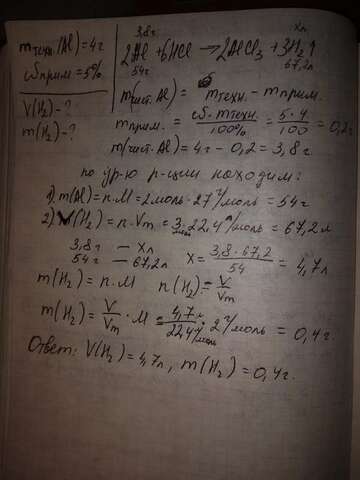 mтехн.(Al) = 4г
ω прим = 5%
V(H₂) - ?
m(H₂) - ?
3,8г xл
2Al + 6HCl → 2AlCl₃ + 3H₂↑
54г 67,2л
m(чист. Al) = mтехн. - mприм.
mприм. = ω · mтехн. / 100% = 5 · 4 / 100 = 0,2г
m(чист. Al) = 4г - 0,2 = 3,8г.
по ур-ю р-ции находим:
1) m(Al) = n·M = 2моль · 27 г/моль = 54г
2) V(H₂) = n · Vm = 3 моль · 22,4 л/моль = 67,2л
3,8г — xл
54г — 67,2л x = 3,8 · 67,2 / 54 = 4,7л
m(H₂) = n · M n(H₂) = V / Vm
m(H₂) = V / Vm · M = 4,7л / 22,4 л/моль · 2 г/моль = 0,4г.
Ответ: V(H₂) = 4,7л, m(H₂) = 0,4г.